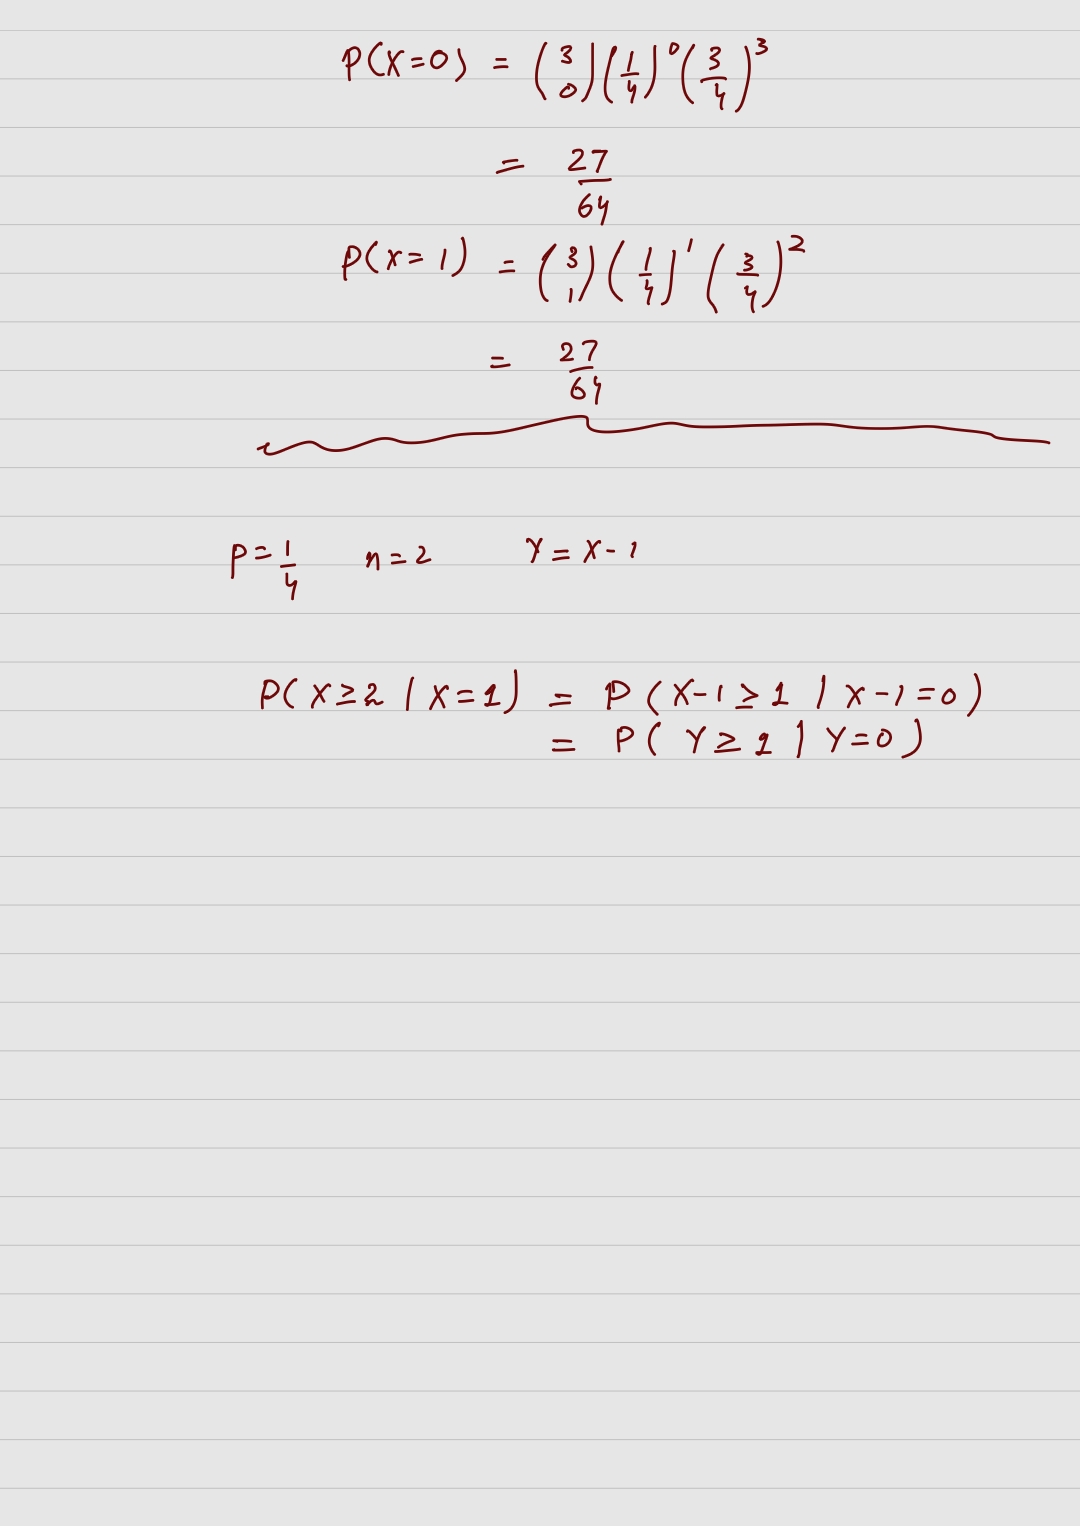 P(X=0) = (3 0)(1/4)^0(3/4)^3
= 27/64
P(X=1) = (3 1)(1/4)^1(3/4)^2
= 27/64
P=1/4 n=2 Y=X-1
P(X≥2 | X=1) = P(X-1≥1 | X-1=0)
= P(Y≥1 | Y=0)